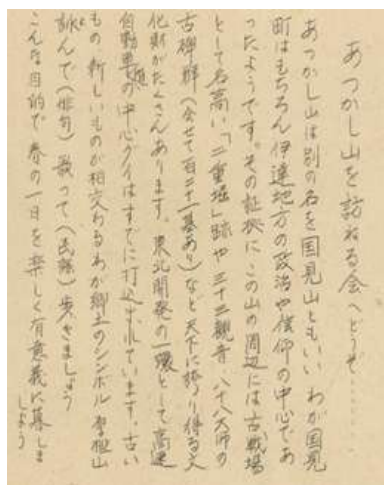 あつかし山を訪ねる会へどうぞ……
あつかし山は別の名を国見山ともいい わが国見
町はもちろん伊達地方の政治や信仰の中心であ
ったようです。その証拠に この山の周辺には古戦場
として名高い「二重堀」跡や 三十三観音 八十八大師の
古碑群(合せて百二十一基あり)など天下に誇り得る文
化財がたくさんあります。東北開発の一環として高速
自動車道の中心グイはすでに打込まれています。古い
もの 新しいものが相交わるわが郷土のシンボル 厚樫山
詠んで(俳句)歌って(民謡)歩きましょう
こんな目的で春の一日を楽しく有意義に暮しま
しょう